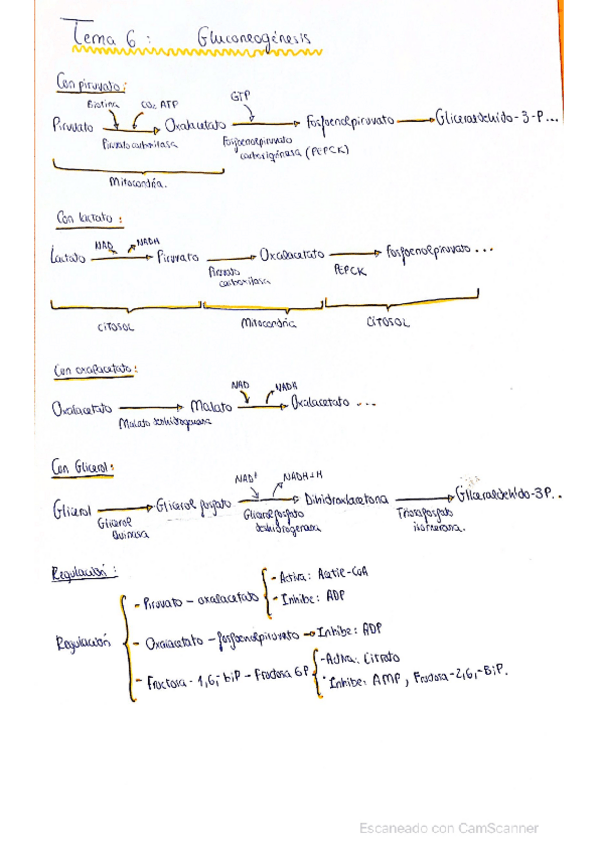 Tema 6 : Gluconeogénesis
Con piruvato :
Biotina CO₂ ATP GTP
Piruvato Oxalacetato Fosfoenolpiruvato Gliceraldehido-3-P...
Piruvato carboxilasa Fosfoenolpiruvato
carboxiquinasa (PEPCK)
Mitocondria.
Con lactato :
NAD NADH
Lactato Piruvato Oxalacetato Fosfoenolpiruvato ...
Piruvato PEPCK
carboxilasa
CITOSOL Mitocondria CITOSOL
Con oxalacetato :
NAD NADH
Oxalacetato Malato Oxalacetato ...
Malato deshidrogenasa
Con Glicerol :
NAD⁺ NADH+H
Glicerol Glicerol fosfato Dihidroxiacetona Gliceraldehido-3P..
Glicerol Glicerol fosfato Triosafosfato
Quinasa deshidrogenasa isomerasa.
Regulación :
- Activa: Acetil-CoA
- Piruvato - oxalacetato
- Inhibe: ADP
Regulación
- Oxalacetato - fosfoenolpiruvato → Inhibe: ADP
- Activa: Citrato
- Fructosa - 1,6,- biP - Fructosa 6P
· Inhibe: AMP, Fructosa-2,6,-BiP.
Escaneado con CamScanner